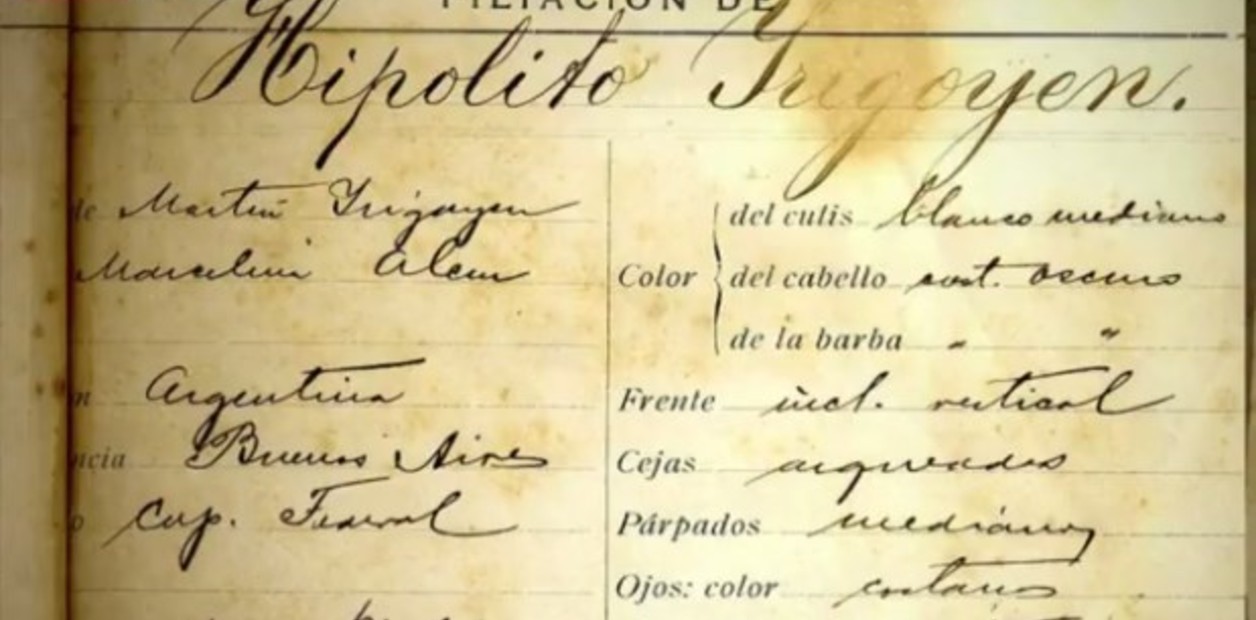 FILIACION DE
Hipolito Yrigoyen.
de Martin Yrigoyen
Marcelina Alem
n Argentina
ncia Buenos Aires
o Cap. Federal
Color
del cutis blanco mediano
del cabello cast. oscuro
de la barba " "
Frente incl. vertical
Cejas arqueadas
Párpados medianos
Ojos: color castaños